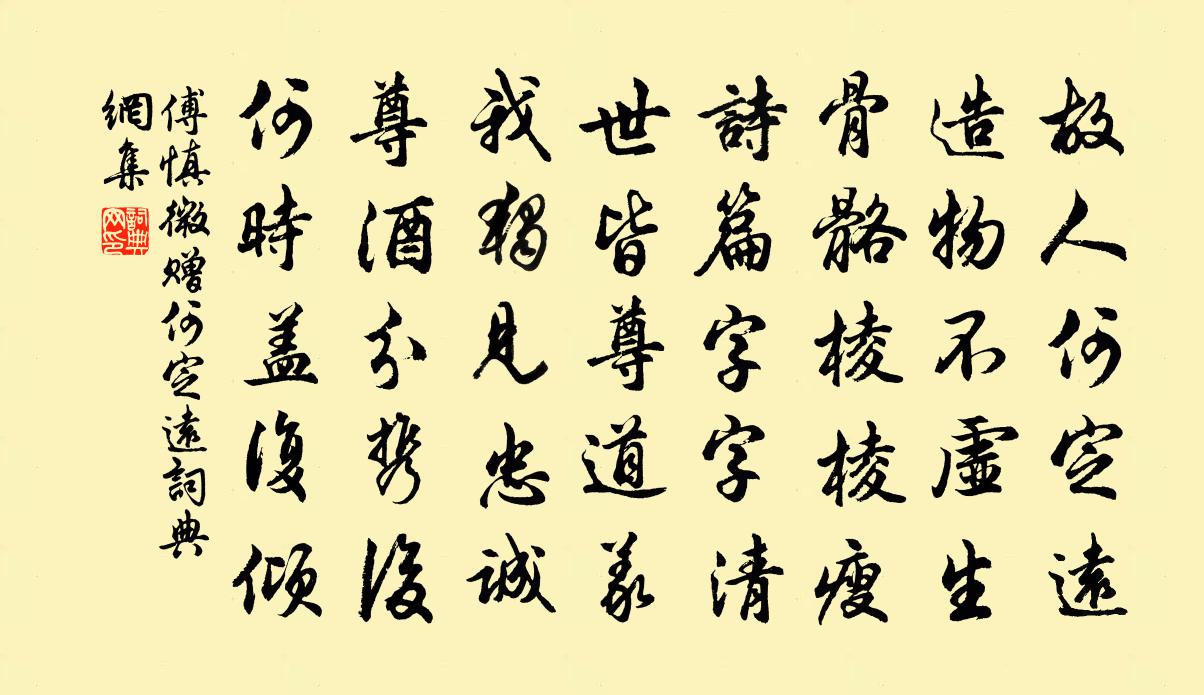 故人何定遠
造物不虛生
骨骼棱棱瘦
詩篇字字清
世皆尊道義
我獨見忠誠
尊酒分携後
何時盖復傾
傅慎微贈何定遠詞典
網集
詞典
网印